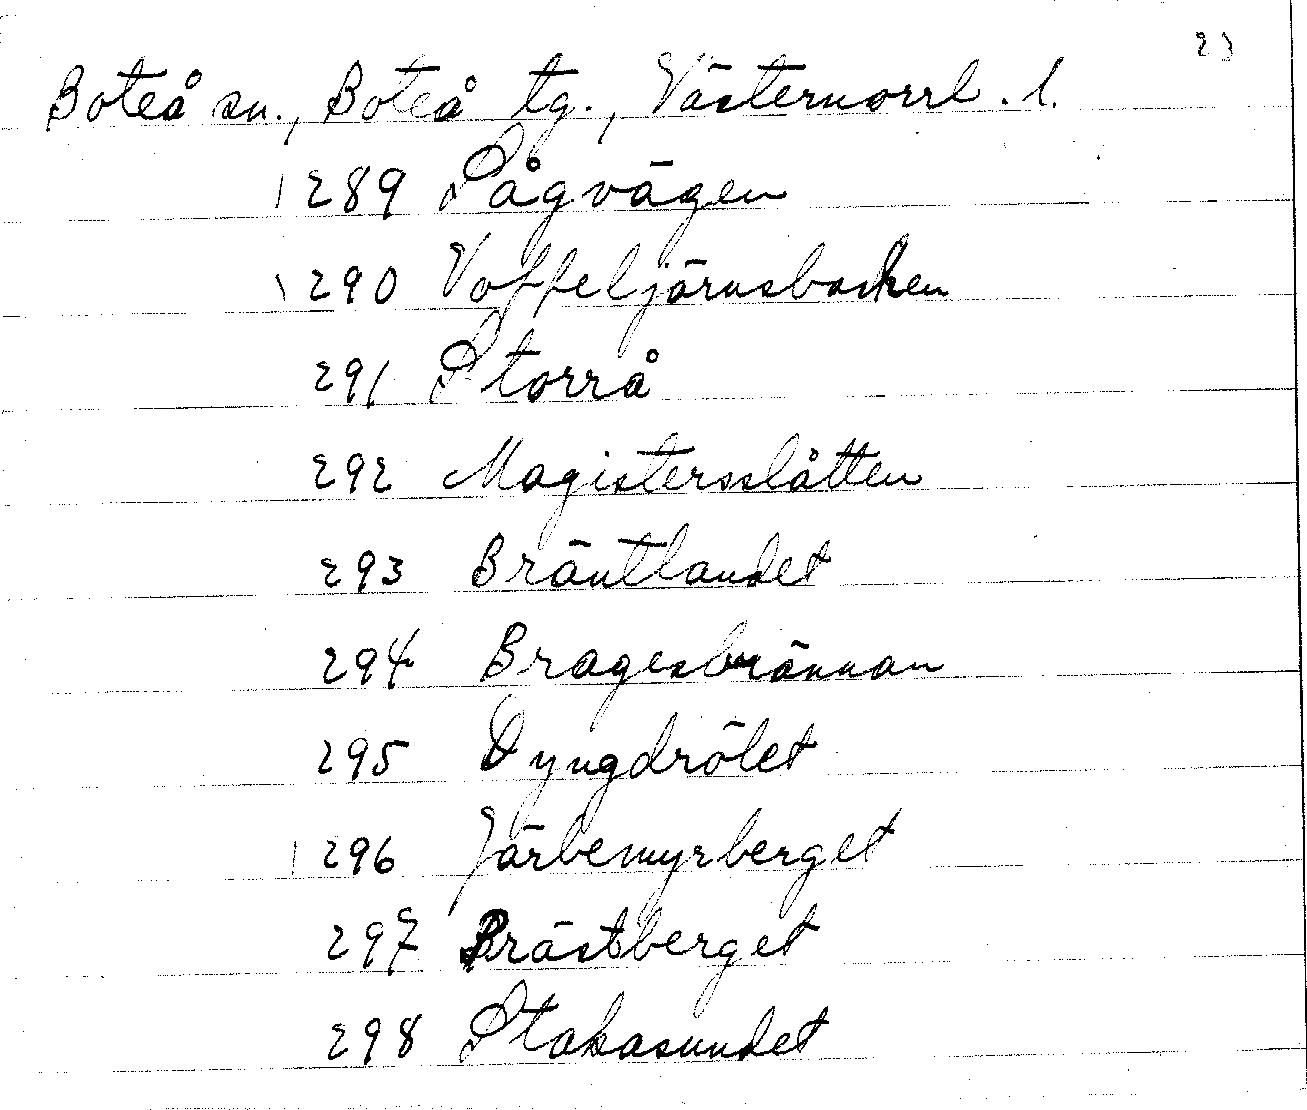 23
Boteå sn., Boteå tg., Västernorrl. l.
289 Sågvägen
290 Voffeljärnsbacken
291 Storrå
292 Magistersslåtten
293 Bräntlandet
294 Bragesbrännan
295 Dyngdrölet
296 Järbemyrberget
297 Prästberget
298 Stakasundet